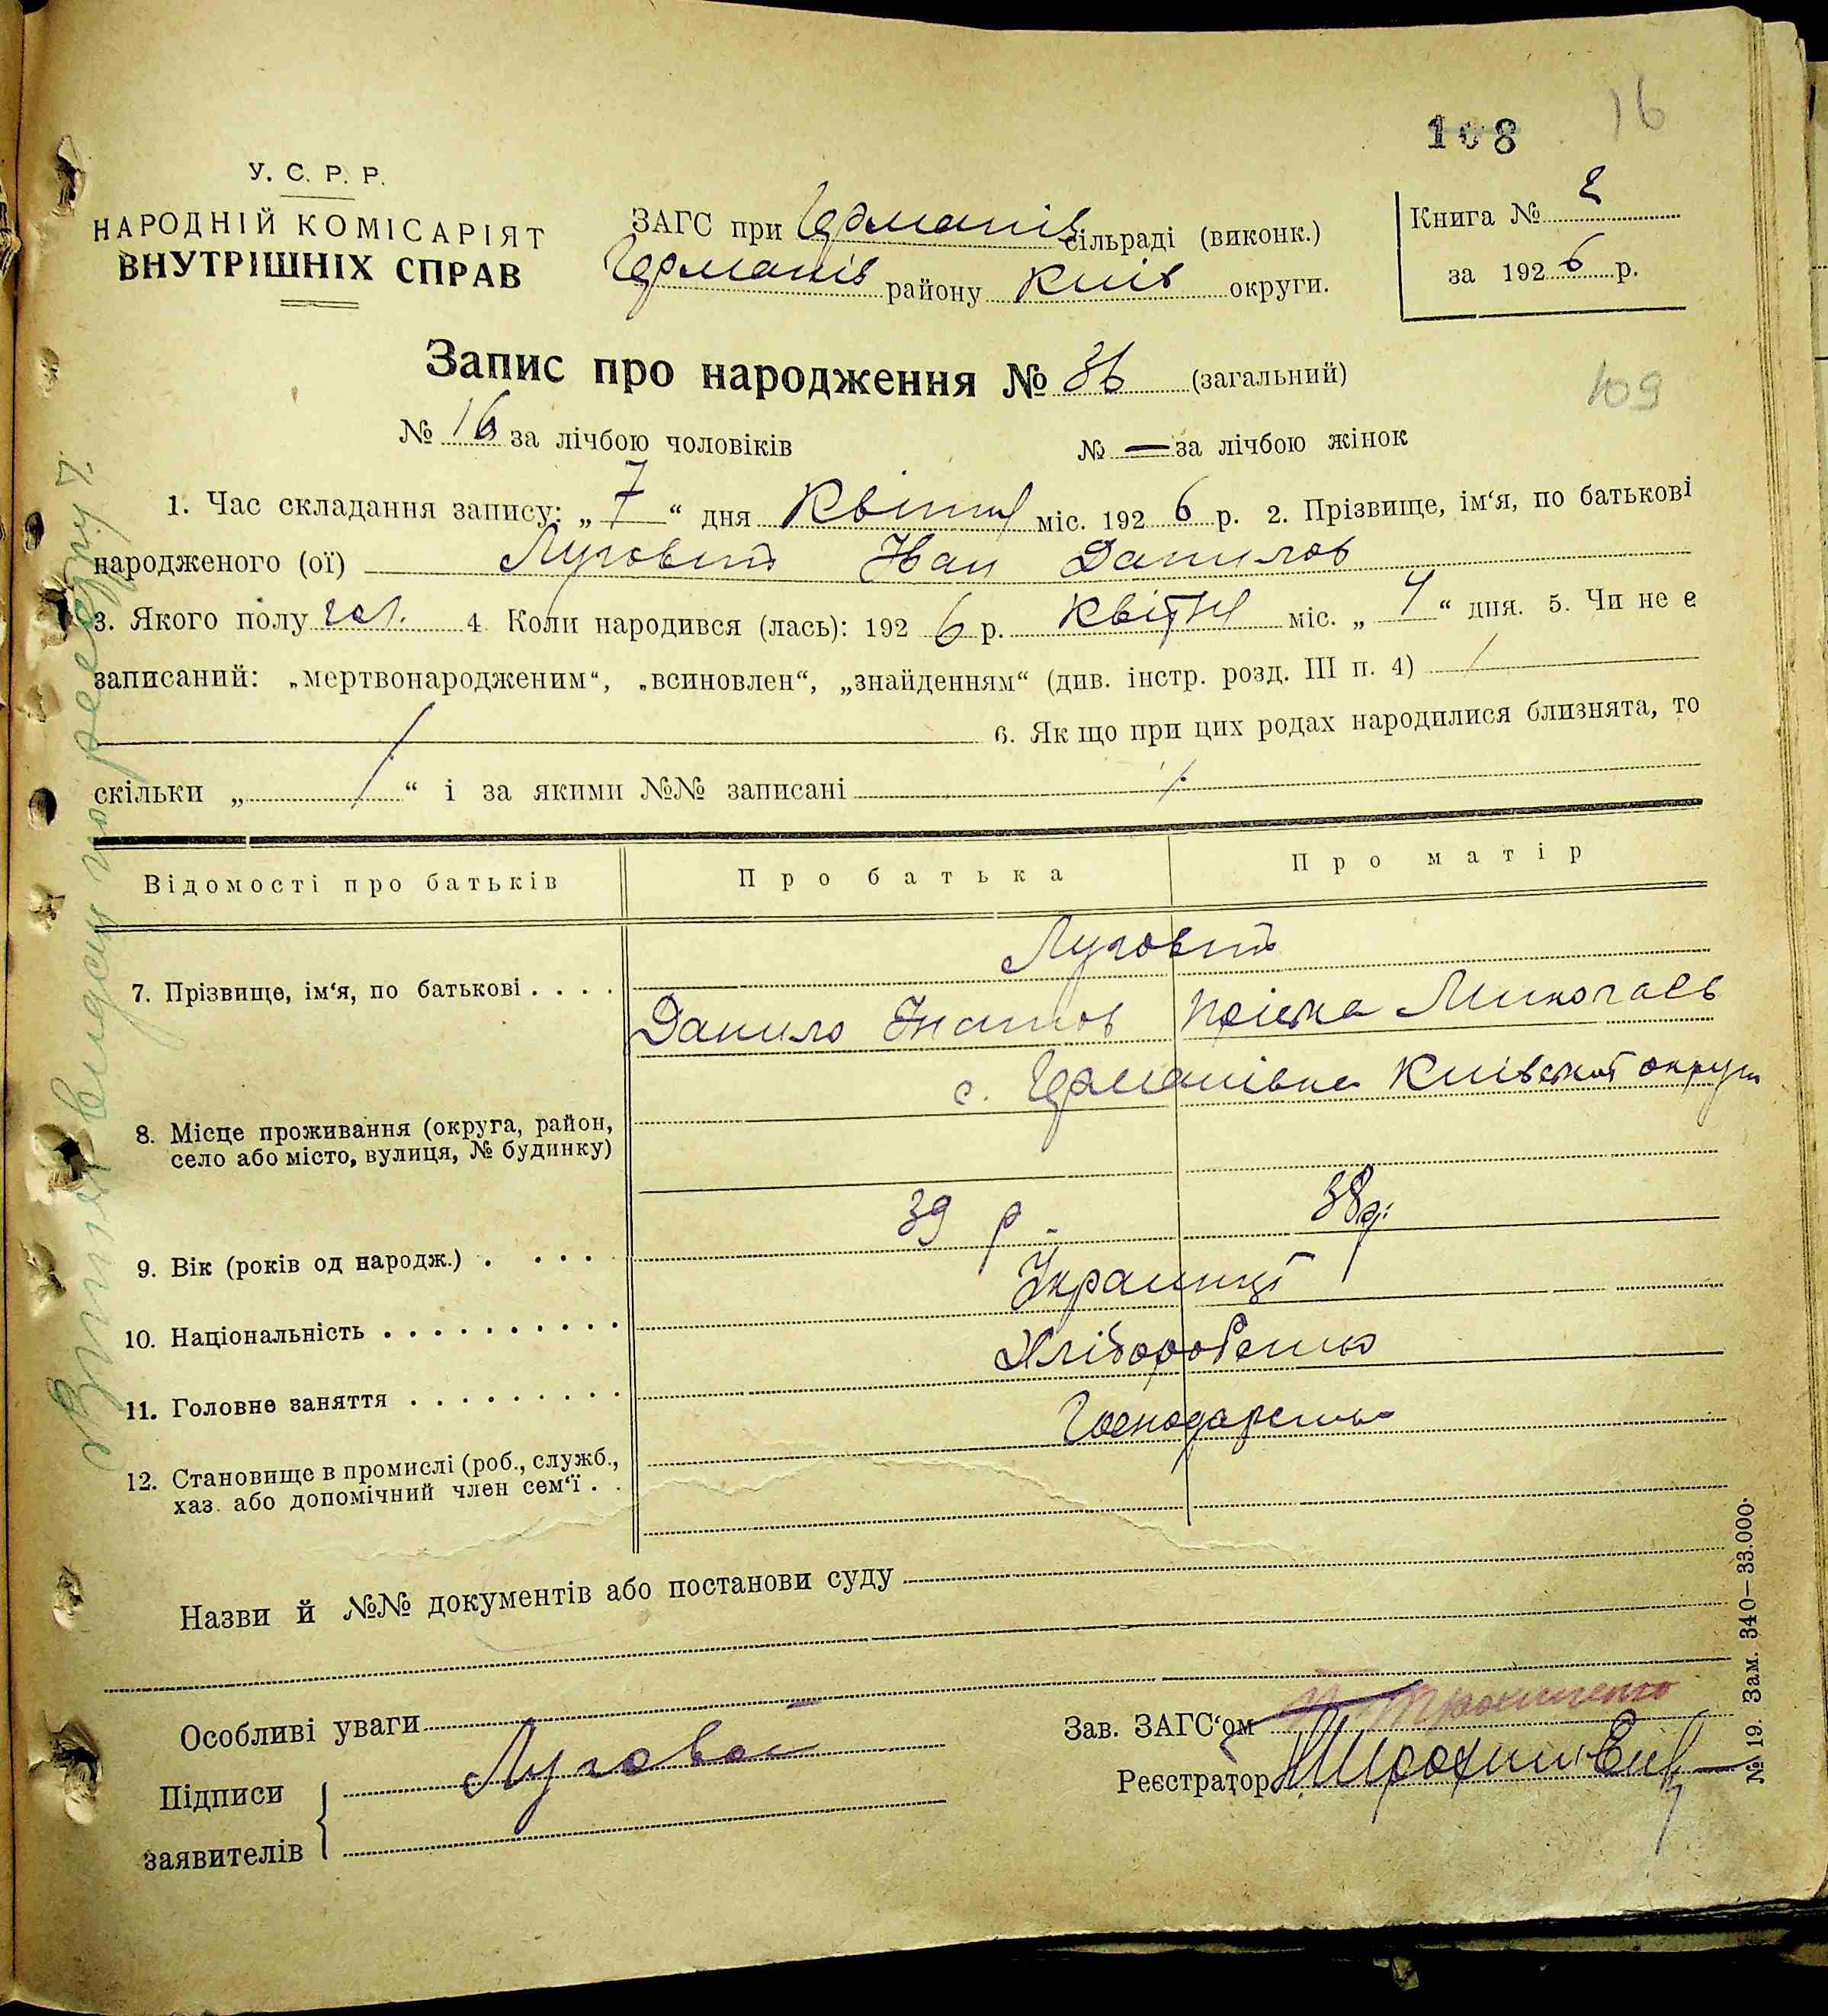 108 16
У. С. Р. Р.
НАРОДНІЙ КОМІСАРІЯТ
ВНУТРІШНІХ СПРАВ
ЗАГС при Германів сільраді (виконк.)
Германів району Київ округи.
Книга № 2
за 1926 р.
Запис про народження № 36 (загальний)
109
№ 16 за лічбою чоловіків № — за лічбою жінок
1. Час складання запису: „7“ дня Квітня міс. 1926 р. 2. Прізвище, ім‘я, по батькові
народженого (ої) Луговий Іван Данилов
3. Якого полу чол. 4. Коли народився (лась): 1926 р. Квітня міс. „4“ дня. 5. Чи не є
записаний: „мертвонародженим“, „всиновлен“, „знайденням“ (див. інстр. розд. III п. 4) /
/ 6. Як що при цих родах народилися близнята, то
скільки „ / “ і за якими №№ записані /
Відомості про батьків Про батька Про матір
Луговий
7. Прізвище, ім‘я, по батькові . . . .
Данило Гнатов Миколаєв
с. Германівка Київської округи
8. Місце проживання (округа, район,
село або місто, вулиця, № будинку)
39 р. 38 р.
9. Вік (років од народж.) . . . .
Українці
10. Національність . . . . . . . . . .
Хліборобство
11. Головне заняття . . . . . . . . .
Господарство
12. Становище в промислі (роб., служб.,
хаз. або допомічний член сем‘ї . .
Назви й №№ документів або постанови суду
Особливі уваги
Зав. ЗАГС‘ом
Підписи Луговой
заявителів
Реєстратор
№ 19. Зам. 340—33.000.